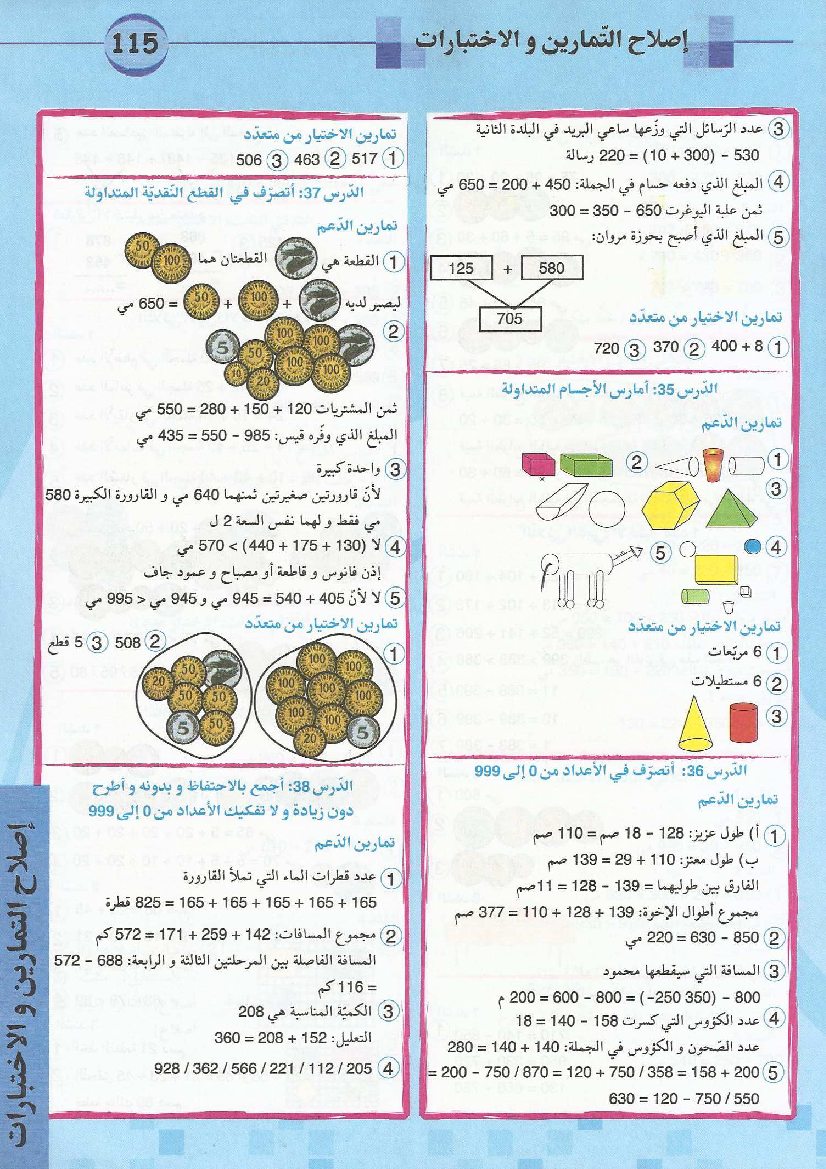 إصلاح التّمارين و الاختبارات
115
③ عدد الرّسائل التي وزّعها ساعي البريد في البلدة الثانية
530 – (300 + 10) = 220 رسالة
④ المبلغ الذي دفعه حسام في الجملة: 450 + 200 = 650 مي
ثمن علبة اليوغرت 650 – 350 = 300
⑤ المبلغ الذي أصبح بحوزة مروان:
125 + 580
705
تمارين الاختيار من متعدّد
① 8 + 400 ② 370 ③ 720
الدّرس 35: أمارس الأجسام المتداولة
تمارين الدّعم
① ②
③
④ ⑤
تمارين الاختيار من متعدّد
① 6 مربّعات
② 6 مستطيلات
③
الدّرس 36: أتصرّف في الأعداد من 0 إلى 999
تمارين الدّعم
① أ) طول عزيز: 128 – 18 صم = 110 صم
ب) طول معتز: 110 + 29 = 139 صم
الفارق بين طوليهما = 139 – 128 = 11صم
مجموع أطوال الإخوة: 139 + 128 + 110 = 377 صم
② 850 – 630 = 220 مي
③ المسافة التي سيقطعها محمود
800 – (350 250-) = 800 – 600 = 200 م
④ عدد الكؤوس التي كسرت 158 – 140 = 18
عدد الصّحون و الكؤوس في الجملة: 140 + 140 = 280
⑤ 200 + 158 = 358 / 750 + 120 = 870 / 750 – 200 =
550 / 750 – 120 = 630
تمارين الاختيار من متعدّد
① 517 ② 463 ③ 506
الدّرس 37: أتصرّف في القطع النّقديّة المتداولة
تمارين الدّعم
① القطعة هي القطعتان هما 100 50
ليصير لديه + 100 + 50 = 650 مي
②
ثمن المشتريات 120 + 150 + 280 = 550 مي
المبلغ الذي وفّره قيس: 985 – 550 = 435 مي
③ واحدة كبيرة
لأنّ قارورتين صغيرتين ثمنهما 640 مي و القارورة الكبيرة 580
مي فقط و لهما نفس السعة 2 ل
④ لا (130 + 175 + 440) > 570 مي
إذن فانوس و قاطعة أو مصباح و عمود جاف
⑤ لا لأنّ 405 + 540 = 945 مي و 945 مي < 995 مي
تمارين الاختيار من متعدّد
① ② 508 ③ 5 قطع
الدّرس 38: أجمع بالاحتفاظ و بدونه و أطرح
دون زيادة و لا تفكيك الأعداد من 0 إلى 999
تمارين الدّعم
① عدد قطرات الماء التي تملأ القارورة
165 + 165 + 165 + 165 + 165 = 825 قطرة
② مجموع المسافات: 142 + 259 + 171 = 572 كم
المسافة الفاصلة بين المرحلتين الثالثة و الرابعة: 688 – 572
= 116 كم
③ الكميّة المناسبة هي 208
التعليل: 152 + 208 = 360
④ 205 / 112 / 221 / 566 / 362 / 928
إصلاح التمارين و الاختبارات